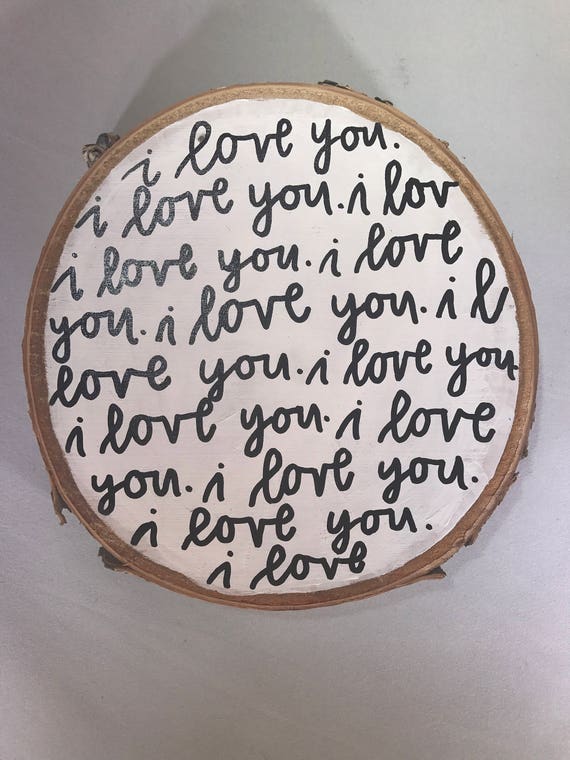 i love you.
i love you. i lov
i love you. i love
you. i love you. i l
love you. i love you
i love you. i love
you. i love you.
i love you.
i love